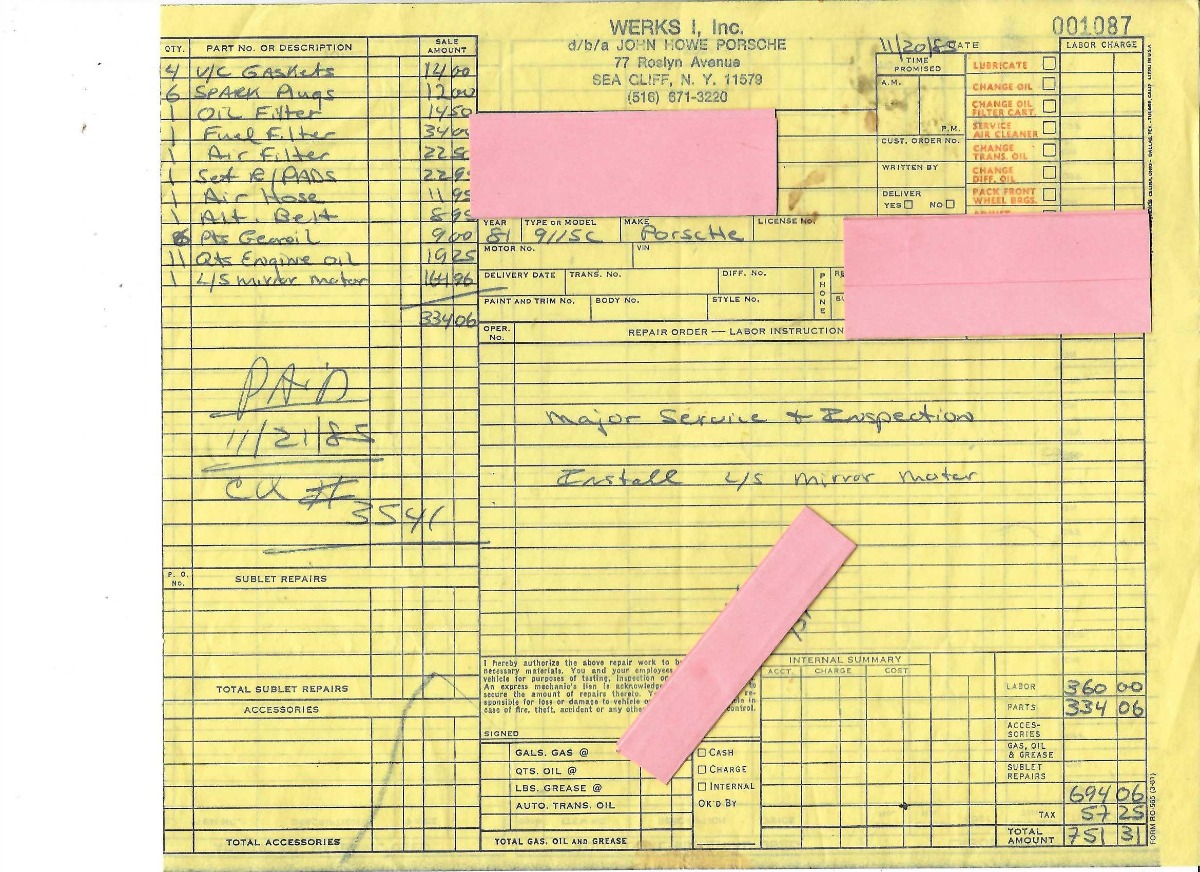 WERKS I, Inc.
d/b/a JOHN HOWE PORSCHE
77 Roslyn Avenue
SEA CLIFF, N. Y. 11579
(516) 671-3220
001087
11/20/85 DATE
QTY. PART NO. OR DESCRIPTION SALE AMOUNT
4 V/C Gaskets 14 00
6 SPARK Plugs 12 00
1 Oil Filter 14 50
1 Fuel Filter 34 00
1 Air Filter 22 50
1 Set R/PADS 22 95
1 Air Hose 11 95
1 Alt. Belt 8 95
6 Pts Gearoil 9 00
11 Qts Engine oil 19 25
1 L/S Mirror Motor
334 06
PAID
11/21/85
CK #
3541
P. O. No. SUBLET REPAIRS
TOTAL SUBLET REPAIRS
ACCESSORIES
TOTAL ACCESSORIES
TIME PROMISED
A.M.
P.M.
CUST. ORDER NO.
WRITTEN BY
DELIVER
YES NO
LABOR CHARGE
LUBRICATE
CHANGE OIL
CHANGE OIL FILTER CART.
SERVICE AIR CLEANER
CHANGE TRANS. OIL
CHANGE DIFF. OIL
PACK FRONT WHEEL BRGS.
YEAR TYPE OR MODEL MAKE LICENSE NO.
81 911SC Porsche
MOTOR NO. VIN
DELIVERY DATE TRANS. NO. DIFF. NO.
PHONE
PAINT AND TRIM NO. BODY NO. STYLE NO.
OPER. NO. REPAIR ORDER — LABOR INSTRUCTION
Major Service & Inspection
Install L/S Mirror Motor
I hereby authorize the above repair work to be
necessary materials. You and your employees
vehicle for purposes of testing, inspection or
An express mechanic's lien is acknowledge
secure the amount of repairs thereto. re-
sponsible for loss or damage to vehicle in
case of fire, theft, accident or any othe control.
SIGNED
GALS. GAS @
QTS. OIL @
LBS. GREASE @
AUTO. TRANS. OIL
TOTAL GAS, OIL AND GREASE
CASH
CHARGE
INTERNAL
OK'D BY
INTERNAL SUMMARY
ACCT. CHARGE COST
LABOR 360 00
PARTS 334 06
ACCES-SORIES
GAS, OIL & GREASE
SUBLET REPAIRS
694 06
TAX 57 25
TOTAL AMOUNT 751 31
FORM RO-565 (3-81)